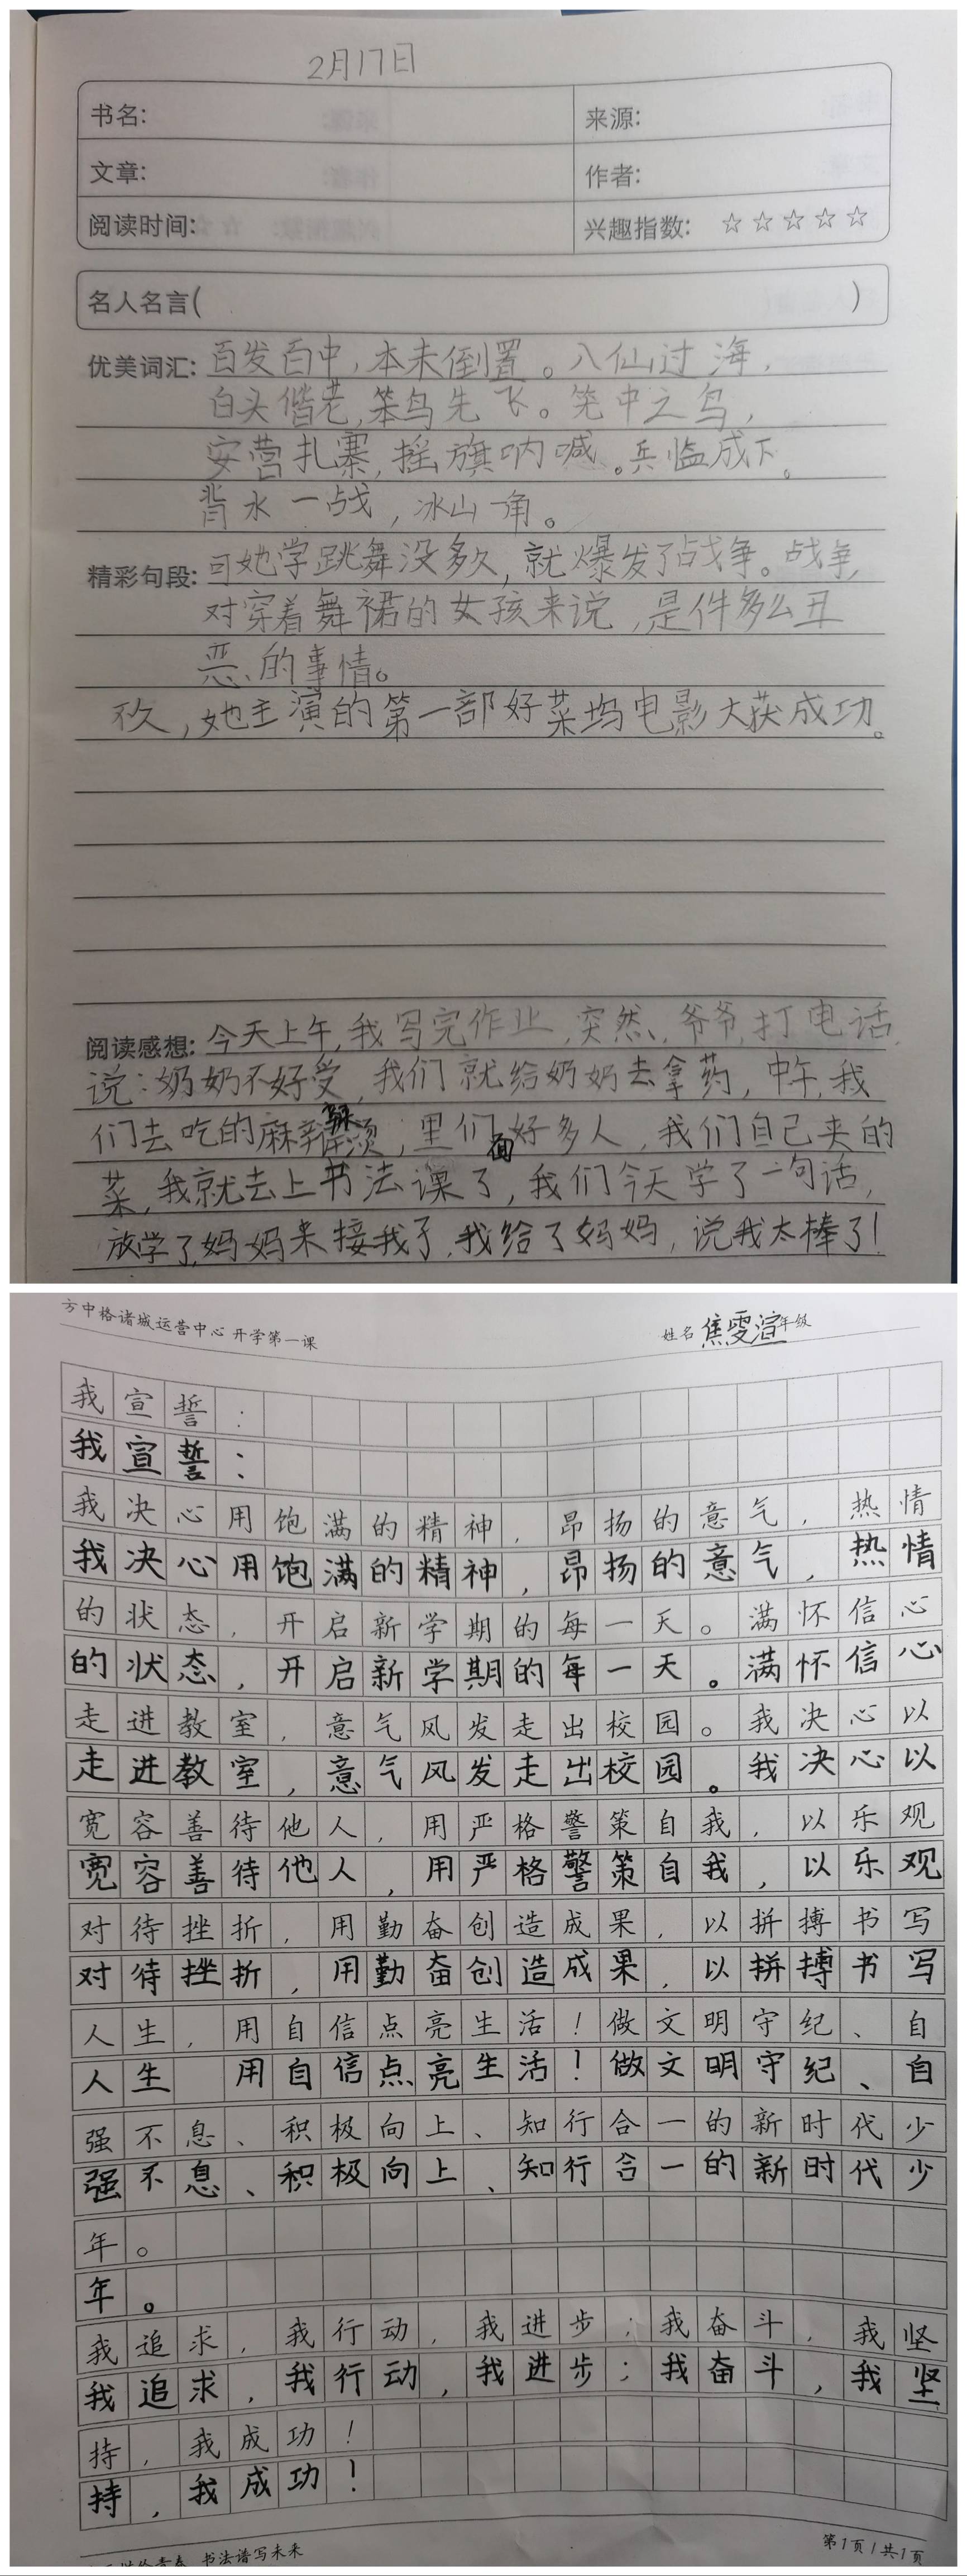 2月17日
书名:
来源:
文章:
作者:
阅读时间:
兴趣指数: ☆☆☆☆☆
名人名言( )
优美词汇: 百发百中,本末倒置。八仙过海,
白头偕老,笨鸟先飞。笼中之鸟,
安营扎寨,摇旗呐喊。兵临成下。
背水一战,冰山一角。
精彩句段: 可她学跳舞没多久,就爆发了战争。战争,
对穿着舞裙的女孩来说,是件多么丑
恶的事情。
不久,她主演的第一部好莱坞电影大获成功。
阅读感想: 今天上午,我写完作业,突然,爷爷,打电话,
说:奶奶不好受,我们就给奶奶去拿药,中午,我
们去吃的麻辣烫,里面好多人,我们自己夹的
菜,我就去上书法课了,我们今天学了一句话,
放学了,妈妈来接我了,我给了妈妈,说我太棒了!
方中格诸城运营中心 开学第一课
姓名 焦雯渲 年级
我宣誓:
我宣誓:
我决心用饱满的精神,昂扬的意气,热情
我决心用饱满的精神,昂扬的意气,热情
的状态,开启新学期的每一天。满怀信心
的状态,开启新学期的每一天。满怀信心
走进教室,意气风发走出校园。我决心以
走进教室,意气风发走出校园。我决心以
宽容善待他人,用严格警策自我,以乐观
宽容善待他人,用严格警策自我,以乐观
对待挫折,用勤奋创造成果,以拼搏书写
对待挫折,用勤奋创造成果,以拼搏书写
人生,用自信点亮生活!做文明守纪、自
人生 用自信点亮生活!做文明守纪、自
强不息、积极向上、知行合一的新时代少
强不息、积极向上、知行合一的新时代少
年。
年。
我追求,我行动,我进步;我奋斗,我坚
我追求,我行动,我进步;我奋斗,我坚
持,我成功!
持,我成功!
书法谱写未来
第1页/共1页